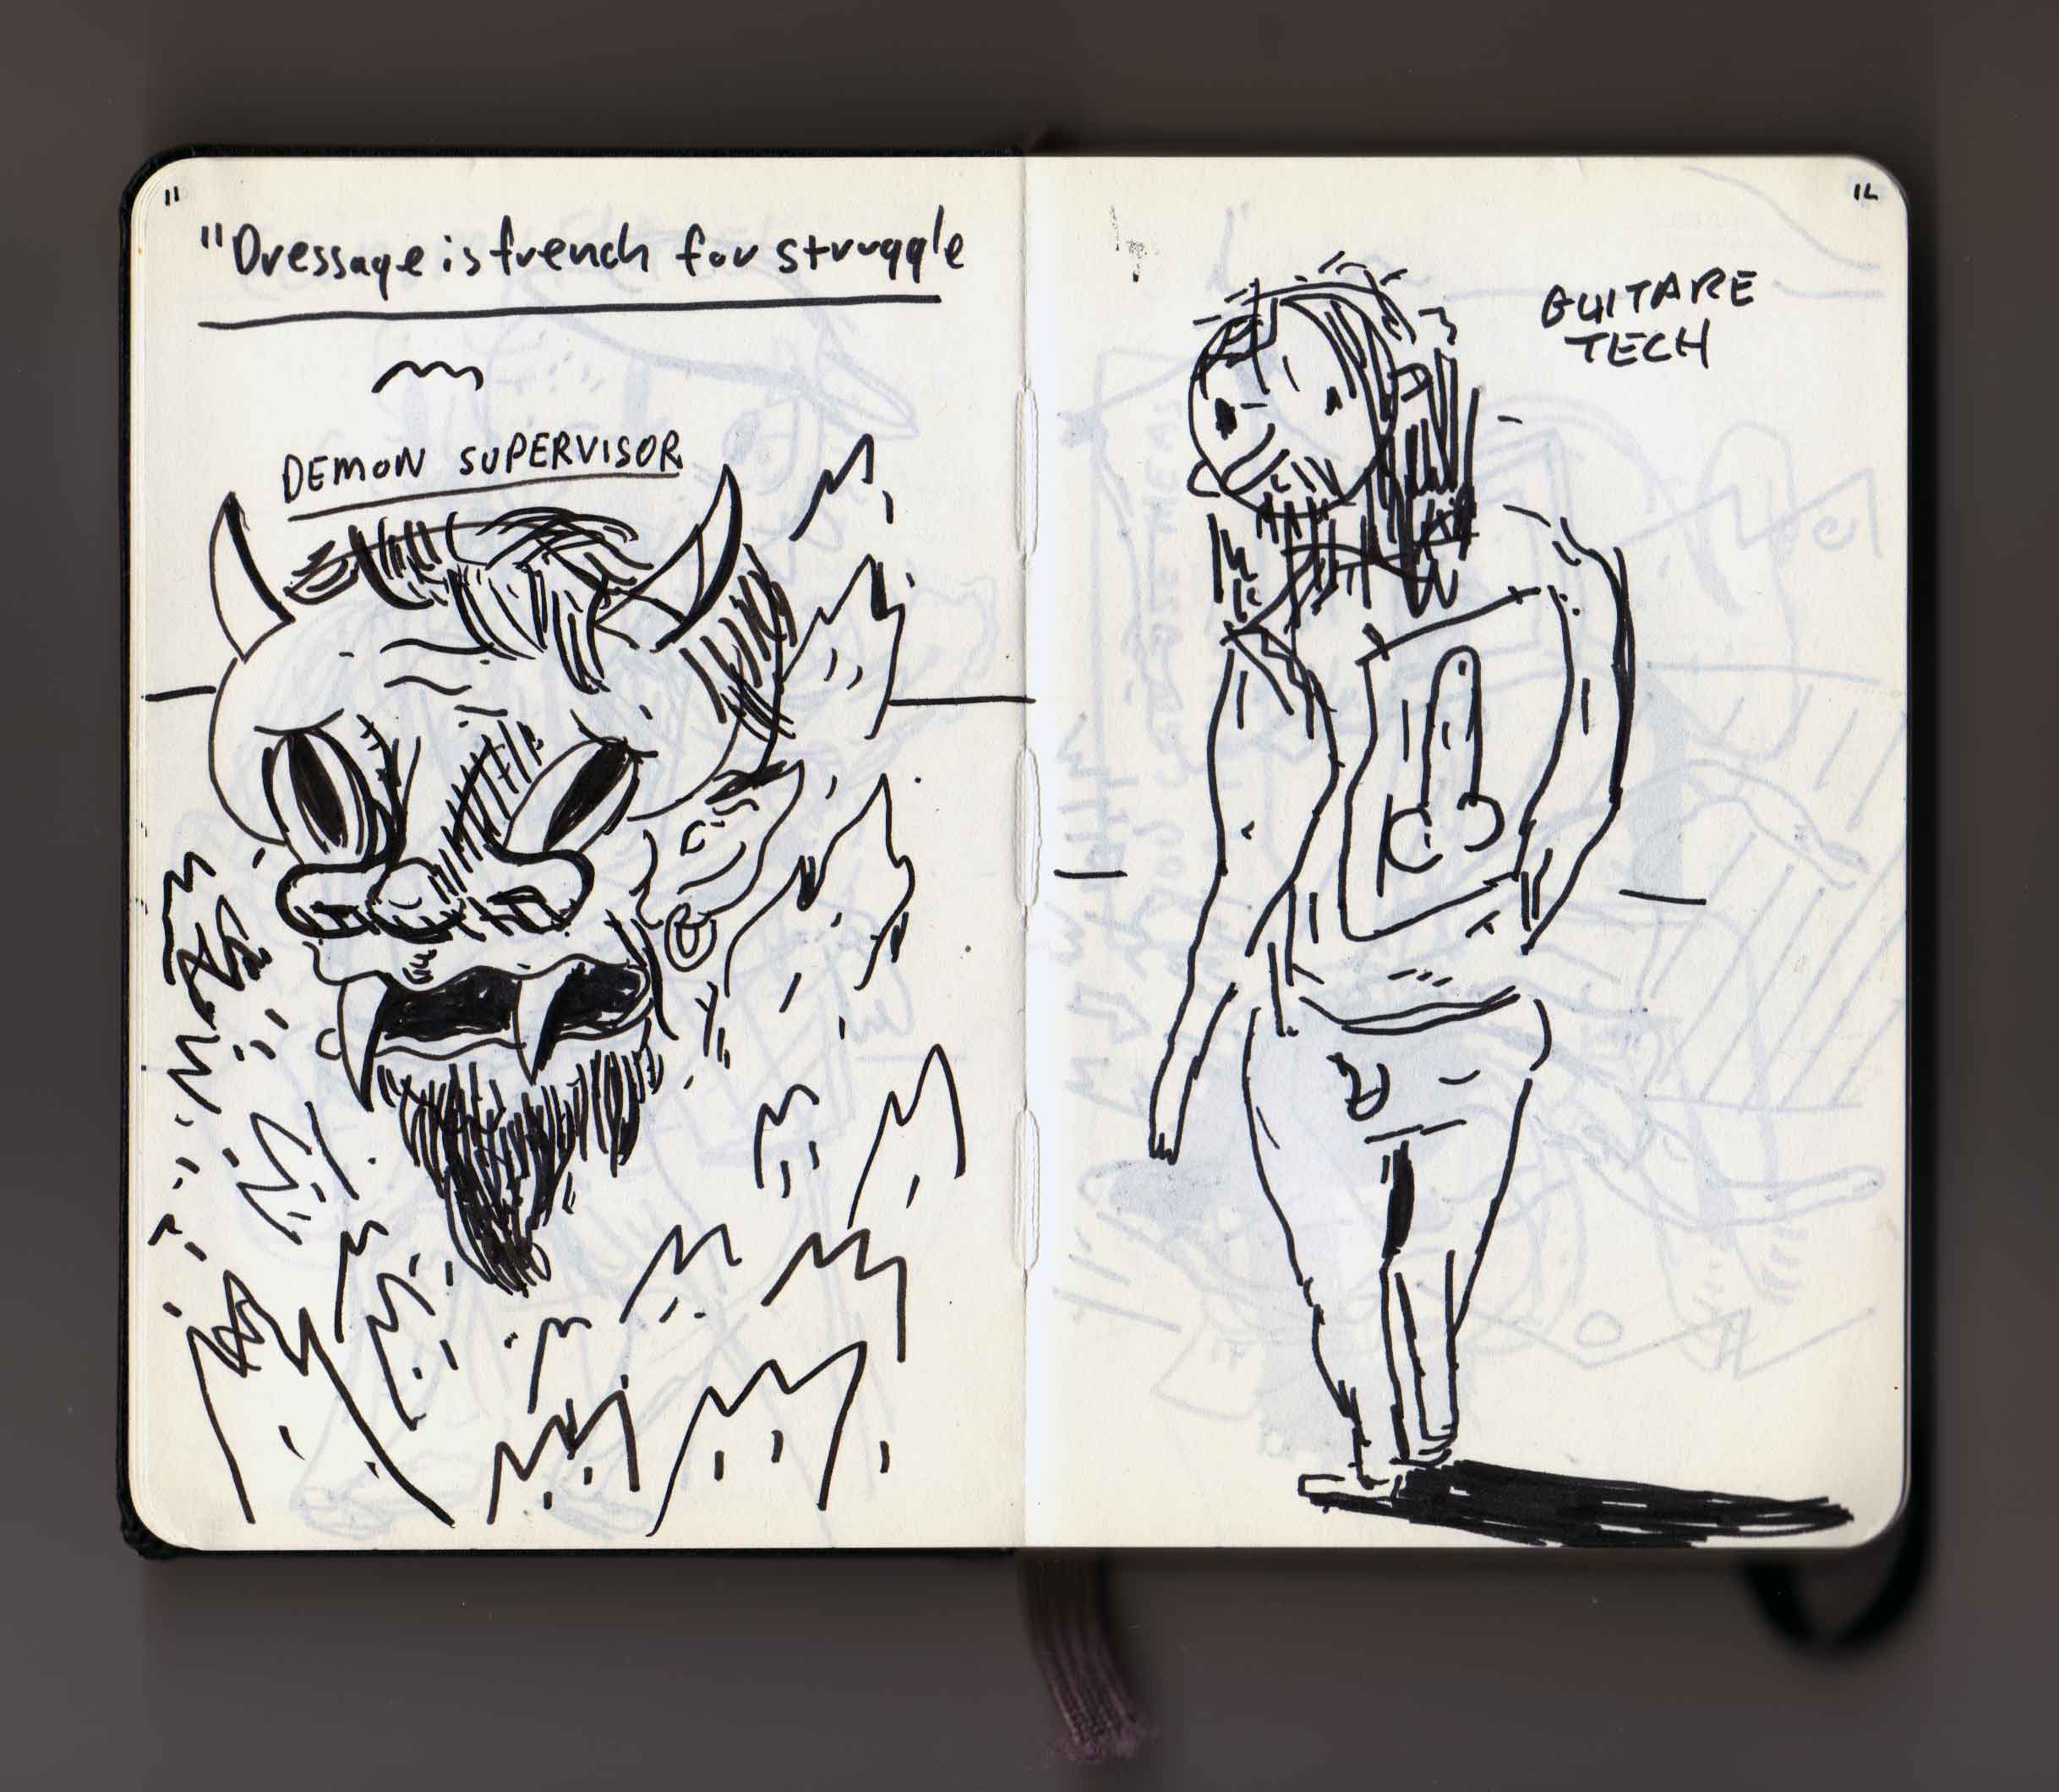 11
"Dressage is french for struggle
DEMON SUPERVISOR
12
GUITARE
TECH